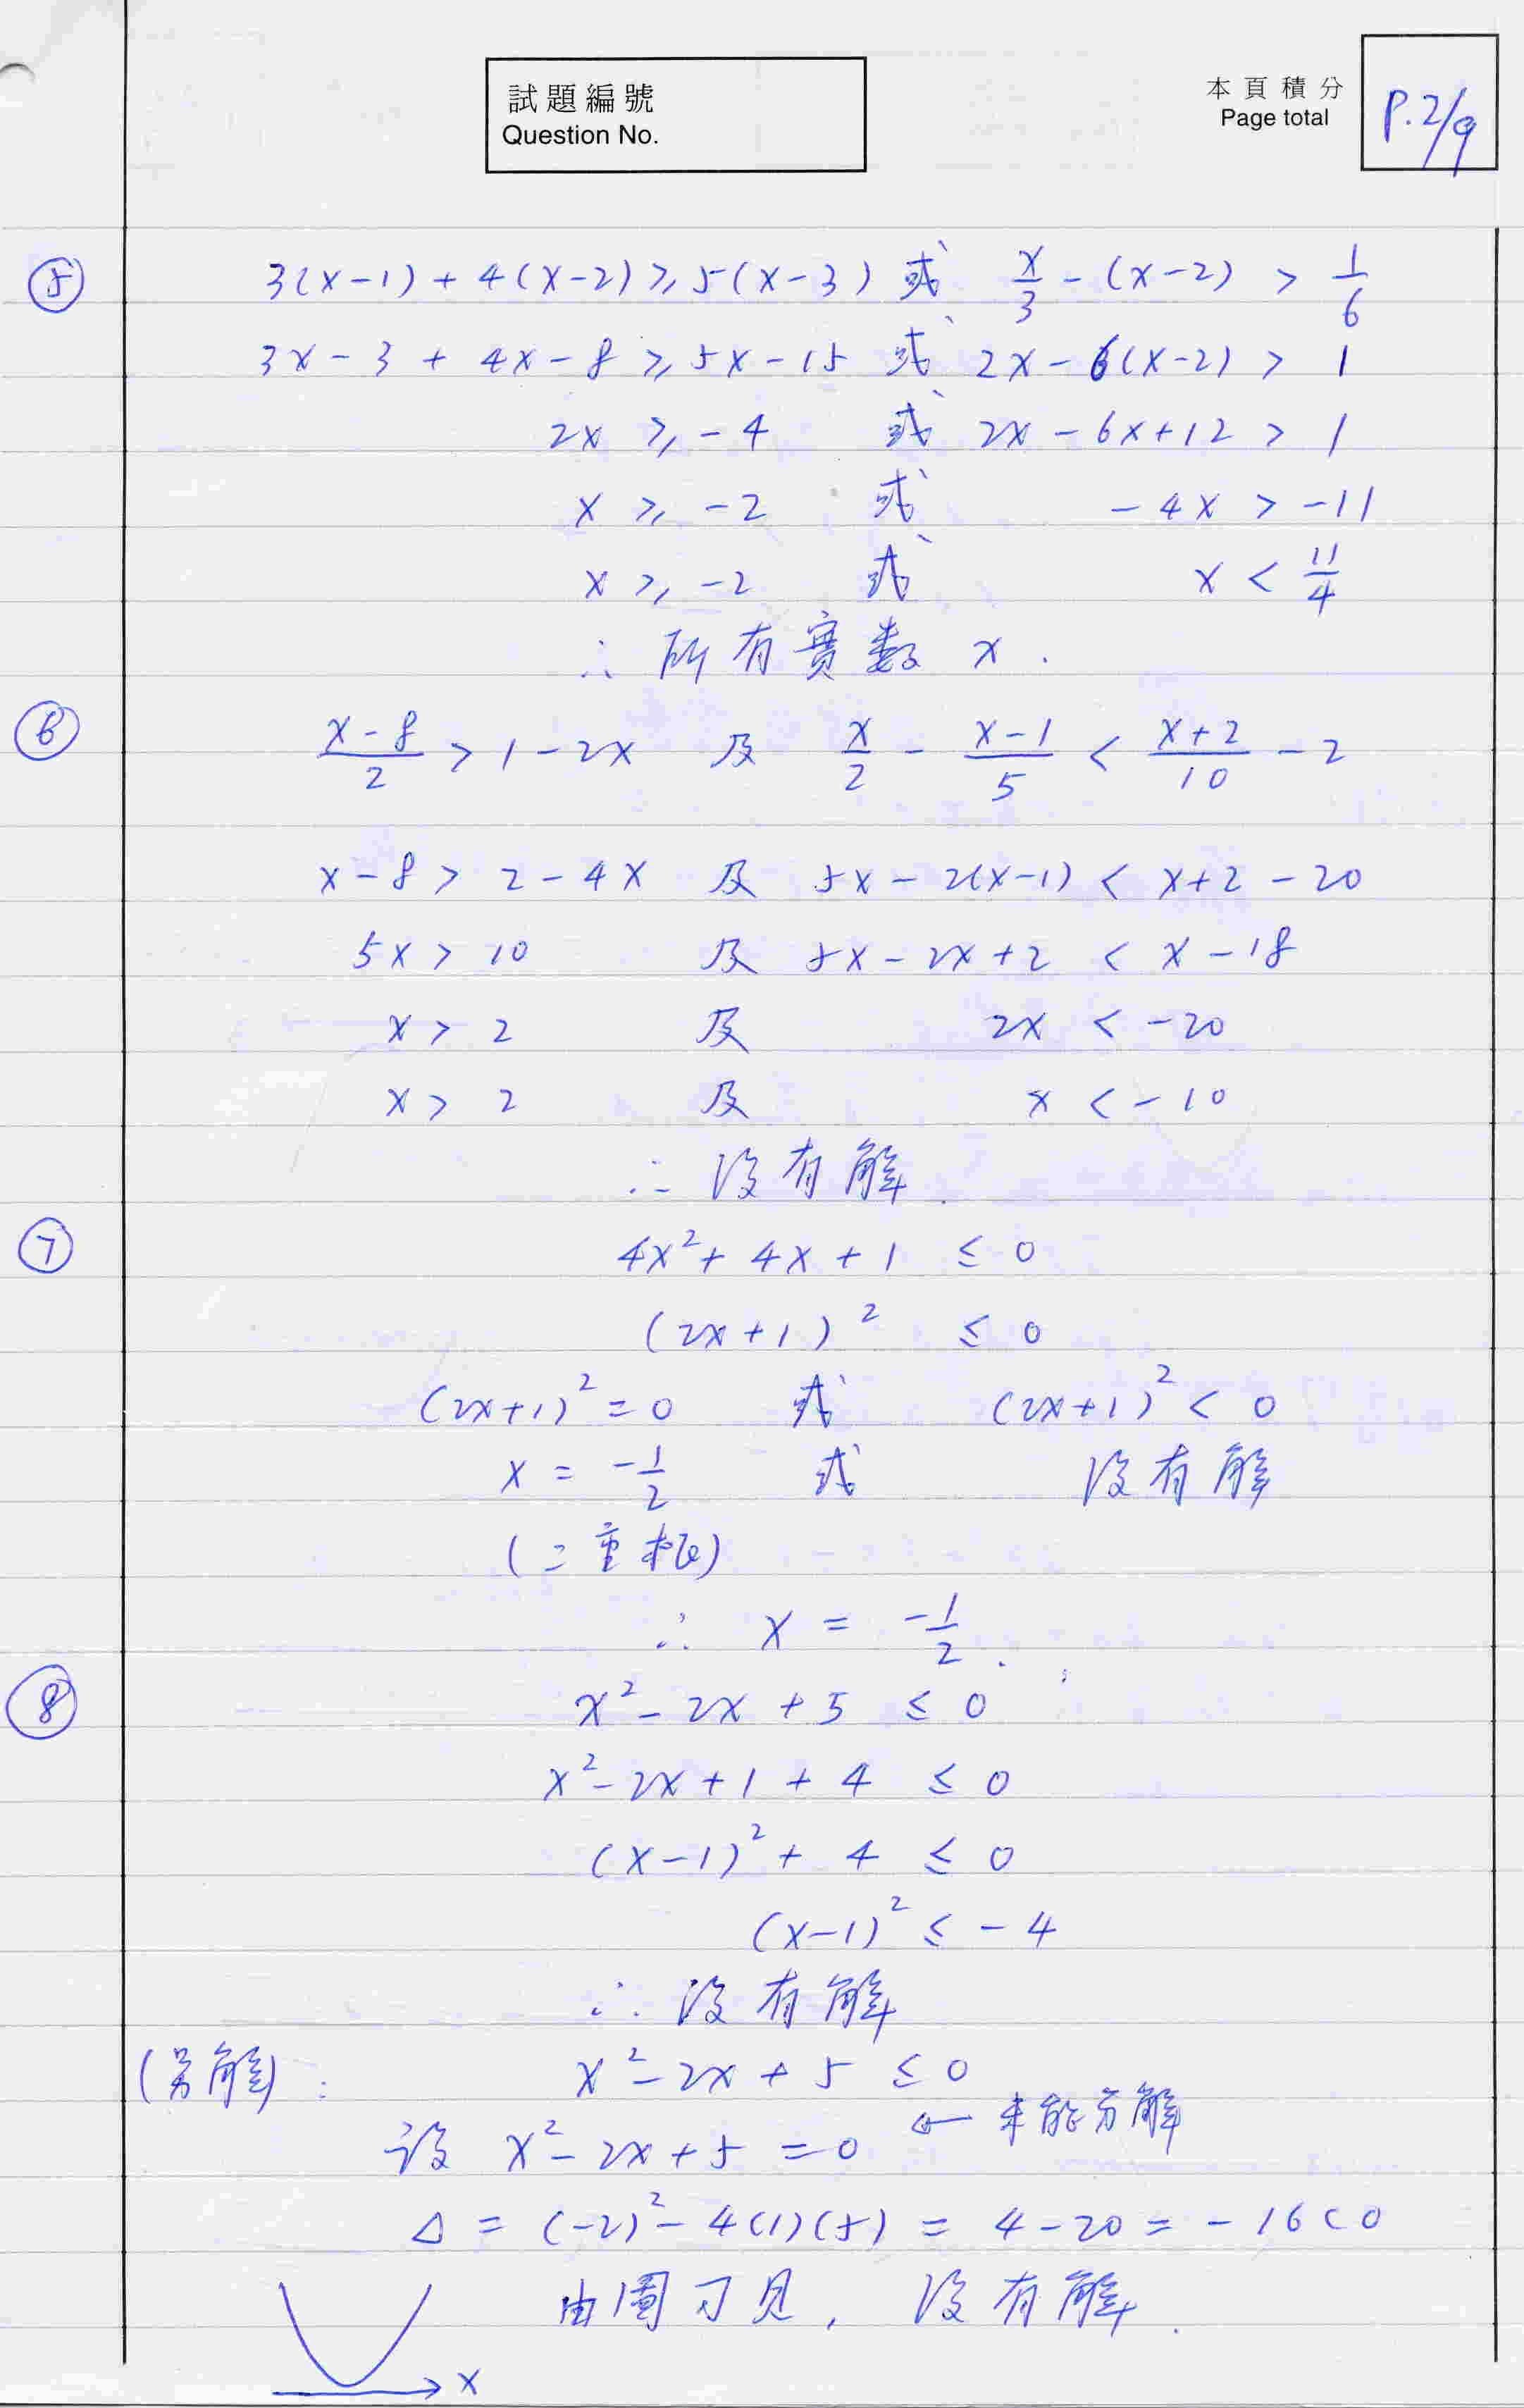 試題編號
Question No.
本頁積分
Page total
P.2/9
⑤ 3(x-1) + 4(x-2) ≥ 5(x-3) 或 x/3 - (x-2) > 1/6
3x - 3 + 4x - 8 ≥ 5x - 15 或 2x - 6(x-2) > 1
2x ≥ -4 或 2x - 6x + 12 > 1
x ≥ -2 或 -4x > -11
x ≥ -2 或 x < 11/4
∴ 所有實數 x.
⑥ (x-8)/2 > 1 - 2x 及 x/2 - (x-1)/5 < (x+2)/10 - 2
x - 8 > 2 - 4x 及 5x - 2(x-1) < x + 2 - 20
5x > 10 及 5x - 2x + 2 < x - 18
x > 2 及 2x < -20
x > 2 及 x < -10
∴ 沒有解.
⑦ 4x² + 4x + 1 ≤ 0
(2x+1)² ≤ 0
(2x+1)² = 0 或 (2x+1)² < 0
x = -1/2 或 沒有解
(二重根)
∴ x = -1/2.
⑧ x² - 2x + 5 ≤ 0
x² - 2x + 1 + 4 ≤ 0
(x-1)² + 4 ≤ 0
(x-1)² ≤ -4
∴ 沒有解
(另解): x² - 2x + 5 ≤ 0
設 x² - 2x + 5 = 0 ← 未能分解
Δ = (-2)² - 4(1)(5) = 4 - 20 = -16 < 0
由圖可見, 沒有解.
x